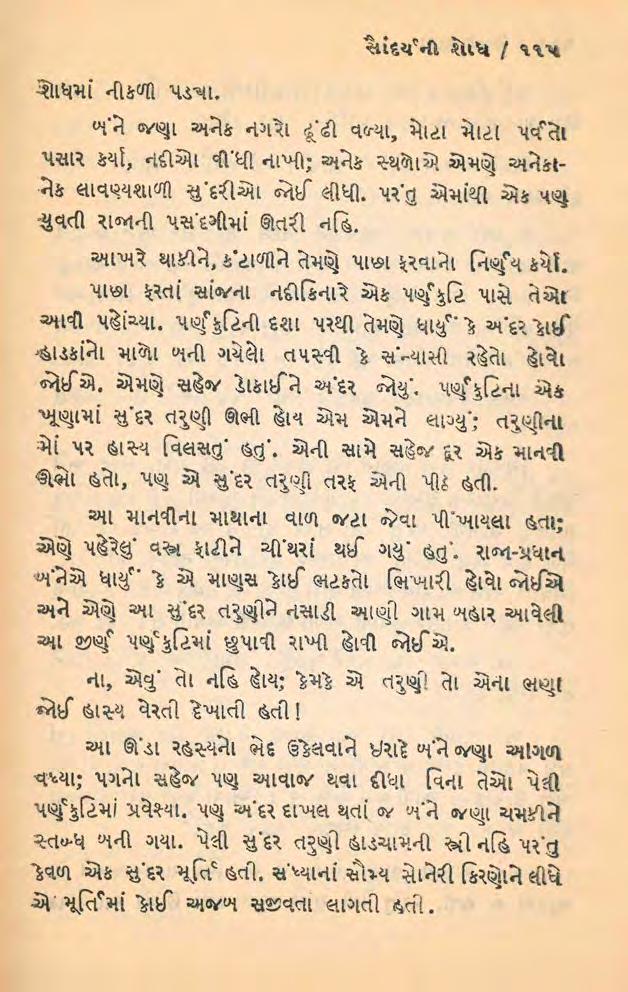 સૈાંદર્યની શોધ / ૧૧૫
શોધમાં નીકળી પડચા.
બંને જણા અનેક નગરો ઢૂંઢી વળ્યા, મોટા મોટા પર્વતો
પસાર કર્યા, નદીઓ વીંધી નાખી; અનેક સ્થળોએ એમણે અનેકા-
નેક લાવણ્યશાળી સુંદરીઓ જોઈ લીધી. પરંતુ એમાંથી એક પણ
યુવતી રાજાની પસંદગીમાં ઊતરી નહિ.
આખરે થાકીને, કંટાળીને તેમણે પાછા ફરવાનો નિર્ણય કર્યો.
પાછા ફરતાં સાંજના નદીકિનારે એક પર્ણકુટિ પાસે તેઓ
આવી પહોંચ્યા. પર્ણકુટિની દશા પરથી તેમણે ધાર્યું કે અંદર કોઈ
હાડકાંનો માળો બની ગયેલો તપસ્વી કે સંન્યાસી રહેતો હોવો
જોઈએ. એમણે સહેજ ડોકાઈને અંદર જોયું. પર્ણકુટિના એક
ખૂણામાં સુંદર તરુણી ઊભી હોય એમ એમને લાગ્યું; તરુણીના
મોં પર હાસ્ય વિલસતું હતું. એની સામે સહેજ દૂર એક માનવી
ઊભો હતો, પણ એ સુંદર તરુણી તરફ એની પીઠ હતી.
આ માનવીના માથાના વાળ જટા જેવા પીંખાયલા હતા;
એણે પહેરેલું વસ્ત્ર ફાટીને ચીંથરાં થઈ ગયું હતું. રાજા-પ્રધાન
બંનેએ ધાર્યું કે એ માણસ કોઈ ભટકતો ભિખારી હોવો જોઈએ
અને એણે આ સુંદર તરુણીને નસાડી આણી ગામ બહાર આવેલી
આ જીર્ણ પર્ણકુટિમાં છુપાવી રાખી હોવી જોઈએ.
ના, એવું તો નહિ હોય; કેમકે એ તરુણી તો એના ભણી
જોઈ હાસ્ય વેરતી દેખાતી હતી!
આ ઊંડા રહસ્યનો ભેદ ઉકેલવાને ઇરાદે બંને જણા આગળ
વધ્યા; પગનો સહેજ પણ આવાજ થવા દીધા વિના તેઓ પેલી
પર્ણકુટિમાં પ્રવેશ્યા. પણ અંદર દાખલ થતાં જ બંને જણા ચમકીને
સ્તબ્ધ બની ગયા. પેલી સુંદર તરુણી હાડચામની સ્ત્રી નહિ પરંતુ
કેવળ એક સુંદર મૂર્તિ હતી. સંધ્યાનાં સૌમ્ય સોનેરી કિરણોને લીધે
એ મૂર્તિમાં કોઈ અજબ સજીવતા લાગતી હતી.